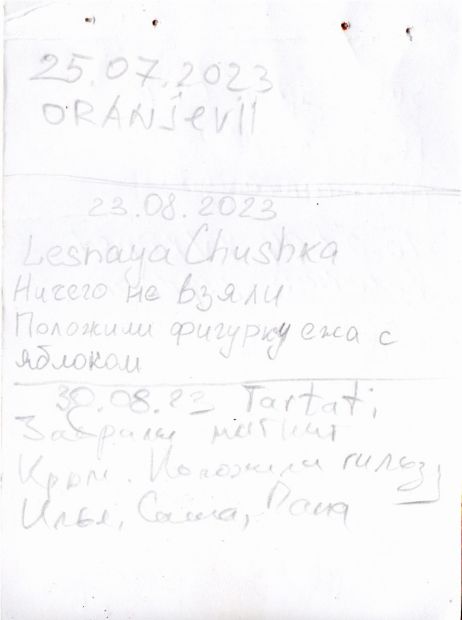 25.07.2023
ORANjevii
23.08.2023
Lesnaya Chushka
Ничего не взяли
Положили фигурку ежа с
яблоком
30.08.23 Tartati
Забрали магнит
Крым. Положили гильзу
Илья, Саша, Дана